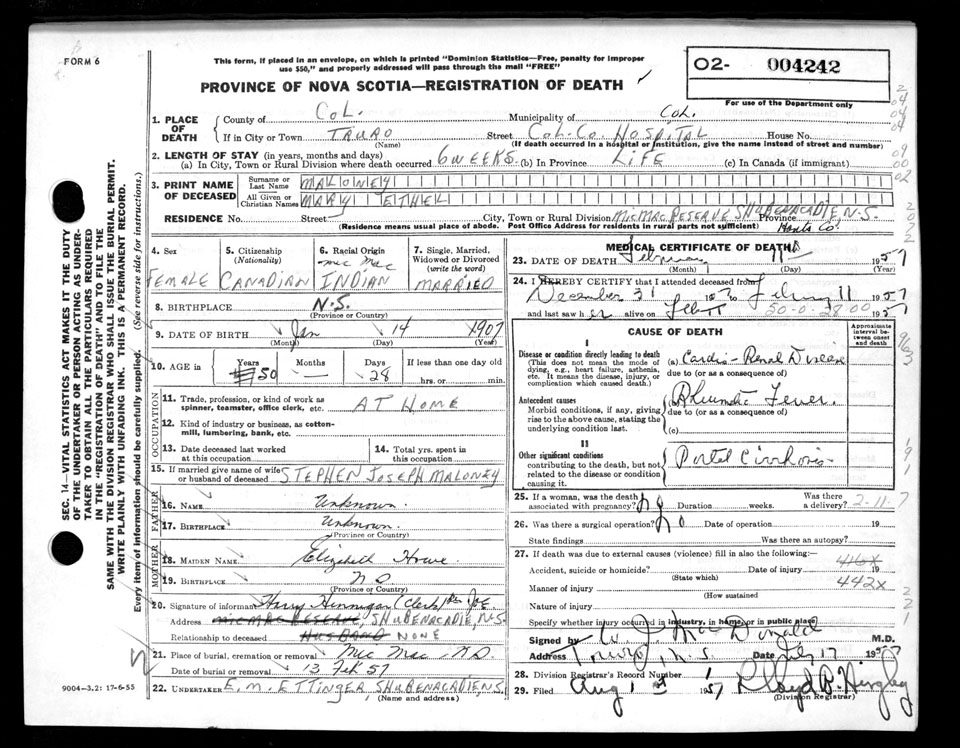 FORM 6
This form, if placed in an envelope, on which is printed "Dominion Statistics—Free, penalty for improper
use $50," and properly addressed will pass through the mail "FREE"
PROVINCE OF NOVA SCOTIA—REGISTRATION OF DEATH
02- 004242
For use of the Department only
1. PLACE OF DEATH
County of COL. Municipality of COL.
If in City or Town TRURO Street COL. CO. HOSPITAL House No.
(Name) (If death occurred in a hospital or institution, give the name instead of street and number)
2. LENGTH OF STAY (in years, months and days)
(a) In City, Town or Rural Division where death occurred 6 WEEKS. (b) In Province LIFE (c) In Canada (if immigrant)
3. PRINT NAME OF DECEASED
Surname or Last Name MALONEY
All Given or Christian Names MARY ETHEL
RESIDENCE No. Street City, Town or Rural Division MICMAC RESERVE SHUBENACADIE, N.S. Province
(Residence means usual place of abode. Post Office Address for residents in rural parts not sufficient) Hants Co.
4. Sex FEMALE
5. Citizenship (Nationality) CANADIAN
6. Racial Origin mic mac INDIAN
7. Single, Married, Widowed or Divorced (write the word) MARRIED
8. BIRTHPLACE N.S.
(Province or Country)
9. DATE OF BIRTH Jan 14 1907
(Month) (Day) (Year)
10. AGE in Years 50 Months — Days 28 If less than one day old
hrs. or min.
OCCUPATION
11. Trade, profession, or kind of work as
spinner, teamster, office clerk, etc. AT HOME
12. Kind of industry or business, as cotton-
mill, lumbering, bank, etc.
13. Date deceased last worked
at this occupation
14. Total yrs. spent in
this occupation
15. If married give name of wife
or husband of deceased STEPHEN JOSEPH MALONEY
FATHER
16. NAME Unknown.
17. BIRTHPLACE Unknown.
(Province or Country)
MOTHER
18. MAIDEN NAME Elizabeth Howe
19. BIRTHPLACE
(Province or Country)
20. Signature of informant Harry Hennigan (Clerk)
Address MICMAC RESERVE, SHUBENACADIE, N.S.
Relationship to deceased HUSBAND NONE
21. Place of burial, cremation or removal Mic Mac
Date of burial or removal 13 Feb 57
22. UNDERTAKER E. M. ETTINGER, SHUBENACADIE, N.S.
9004-3.2: 17-6-55
MEDICAL CERTIFICATE OF DEATH
23. DATE OF DEATH February 11th 1957
(Month) (Day) (Year)
24. I HEREBY CERTIFY that I attended deceased from
December 31 to 11 1957
and last saw her alive on 1957
50-0-28-00
CAUSE OF DEATH
Approximate interval between onset and death
I
Disease or condition directly leading to death
(This does not mean the mode of
dying, e.g., heart failure, asthenia,
etc. It means the disease, injury, or
complication which caused death.)
(a) Cardio-Renal Disease
due to (or as a consequence of)
Antecedent causes
Morbid conditions, if any, giving
rise to the above cause, stating the
underlying condition last.
Rheumatic Fever.
due to (or as a consequence of)
(c)
II
Other significant conditions
contributing to the death, but not
related to the disease or condition
causing it.
Portal Cirrhosis
25. If a woman, was the death
associated with pregnancy? No Duration weeks. Was there
a delivery? 2-11-7
26. Was there a surgical operation? NO Date of operation 19
State findings Was there an autopsy?
27. If death was due to external causes (violence) fill in also the following:—
Accident, suicide or homicide? Date of injury 19
(State which) 416X
Manner of injury 442X
(How sustained)
Nature of injury
Specify whether injury occurred in industry, in home, or in public place
Signed by MacDonald M.D.
Address Truro, N.S. Date 17 1957
28. Division Registrar's Record Number
29. Filed Aug 1957
SEC. 14—VITAL STATISTICS ACT MAKES IT THE DUTY
OF THE UNDERTAKER OR PERSON ACTING AS UNDER-
TAKER TO OBTAIN ALL THE PARTICULARS REQUIRED
IN THE "REGISTRATION OF DEATH" AND TO FILE THE
SAME WITH THE DIVISION REGISTRAR WHO SHALL ISSUE THE BURIAL PERMIT.
WRITE PLAINLY WITH UNFADING INK. THIS IS A PERMANENT RECORD.
Every item of information should be carefully supplied. (See reverse side for instructions.)